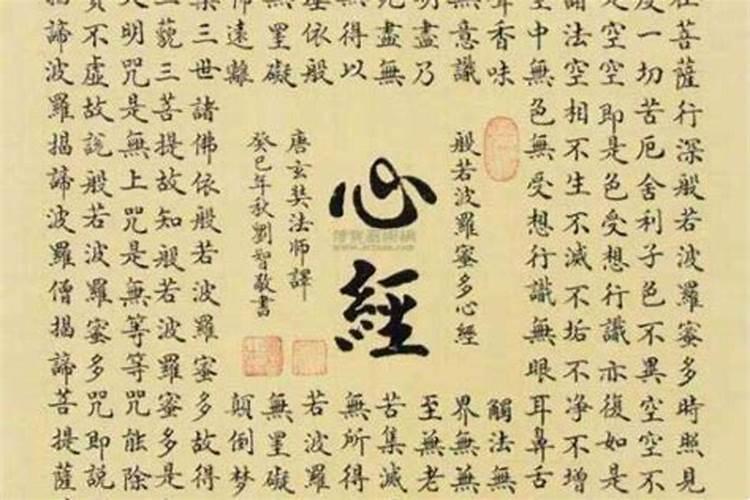 在菩薩行深般若波羅蜜多時照見
度一切苦厄舍利子色不異空空不
是空空即是色受想行識亦復如是
諸法空相不生不滅不垢不淨不增
空中無色無受想行識無眼耳鼻舌
聲香味觸法無
無意識界無無
明盡乃至無老
死盡無苦集滅
無得以無所得
埵依般若波羅
無罣礙無罣礙
怖遠離顛倒夢
槃三世諸佛依般若波羅蜜多故得
三藐三菩提故知般若波羅蜜多是
大明咒是無上咒是無等等咒能除
實不虛故說般若波羅蜜多咒即說
揭諦波羅揭諦波羅僧揭諦菩提薩
般若波羅蜜多心經
心經
唐玄奘法師譯
癸巳年秋劉智敬書